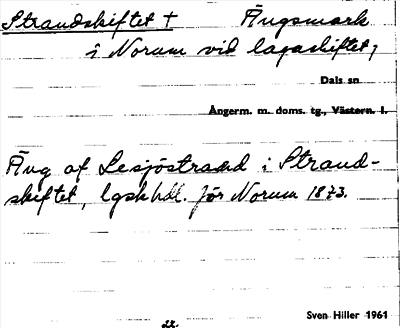 Strandskiftet † Ängsmark
i Norum vid lagaskiftet,
Dals sn
Ångerm. m. doms. tg., Västern. l.
Äng af Lesjöstrand i Strand-
skiftet, lgskhdl. för Norum 1873.
Sven Hiller 1961